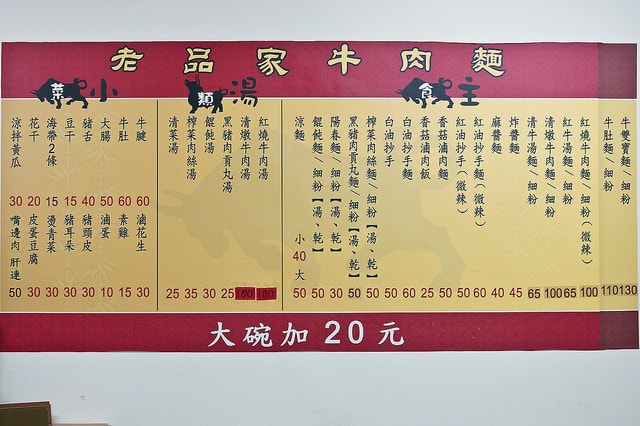 老品家牛肉麵
主食
牛雙寶麵/細粉 130
牛肚麵/細粉 110
紅燒牛肉麵/細粉(微辣) 100
紅牛湯麵/細粉 65
清燉牛肉麵/細粉 100
清牛湯麵/細粉 65
炸醬麵 45
麻醬麵 40
紅油抄手麵(微辣) 60
紅油抄手(微辣) 50
香菇滷肉麵 50
香菇滷肉飯 25
白油抄手麵 60
白油抄手 50
榨菜肉絲麵/細粉【湯、乾】 50
黑豬肉貢丸麵/細粉【湯、乾】 50
陽春麵/細粉【湯、乾】 30
餛飩麵/細粉【湯、乾】 50
涼麵 小 40 大 50
湯類
紅燒牛肉湯 100
清燉牛肉湯 100
黑豬肉貢丸湯 25
餛飩湯 30
榨菜肉絲湯 35
清菜湯 25
小菜
牛腱 60
牛肚 60
大腸 50
豬舌 40
豆干 15
海帶2條 15
花干 20
涼拌黃瓜 30
滷花生 30
素雞 15
滷蛋 10
豬頭皮 30
豬耳朵 30
燙青菜 30
皮蛋豆腐 30
嘴邊肉 肝連 50
大碗加20元